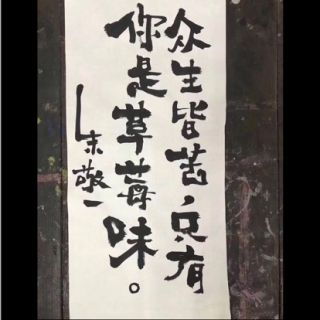 众生皆苦，只有
你是草莓味。
—朱敬一